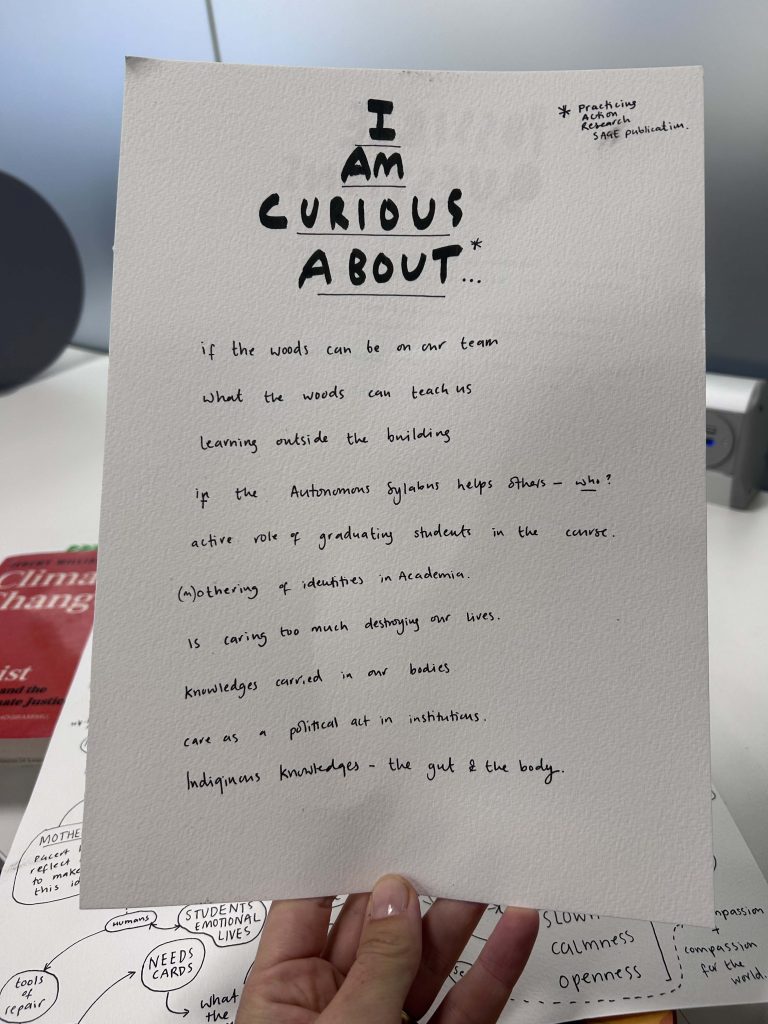 I
AM
CURIOUS
ABOUT*...
* Practicing
Action
Research
SAGE publication.
if the woods can be on our team
what the woods can teach us
learning outside the building
if the Autonomous Sylabus helps others - who?
active role of graduating students in the course.
(m)othering of identities in Academia.
Is caring too much destroying our lives.
knowledges carried in our bodies
care as a political act in institutions.
Indiginous knowledges - the gut & the body.
Clima
Chang
ist
and the
ate Justic
MOTHE
pacent
reflect
to make
this id
humans
STUDENTS
EMOTIONAL
LIVES
NEEDS
CARDS
tools
of
repair
what
the
SLOWN
CALMNESS
OPENNESS
se
mpassion
+
compassion
for the
world.